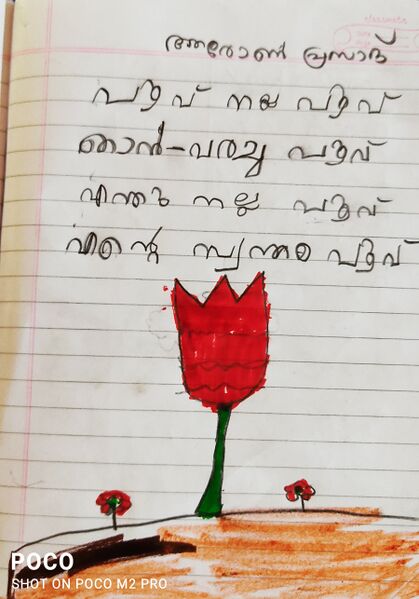 classmate
അരോൺ പ്രസാദ്
പൂവ് നല്ല പൂവ്
ഞാൻ-വരച്ച പൂവ്
എന്തു നല്ല പൂവ്
എൻ്റെ സ്വന്തം പൂവ്
POCO
SHOT ON POCO M2 PRO